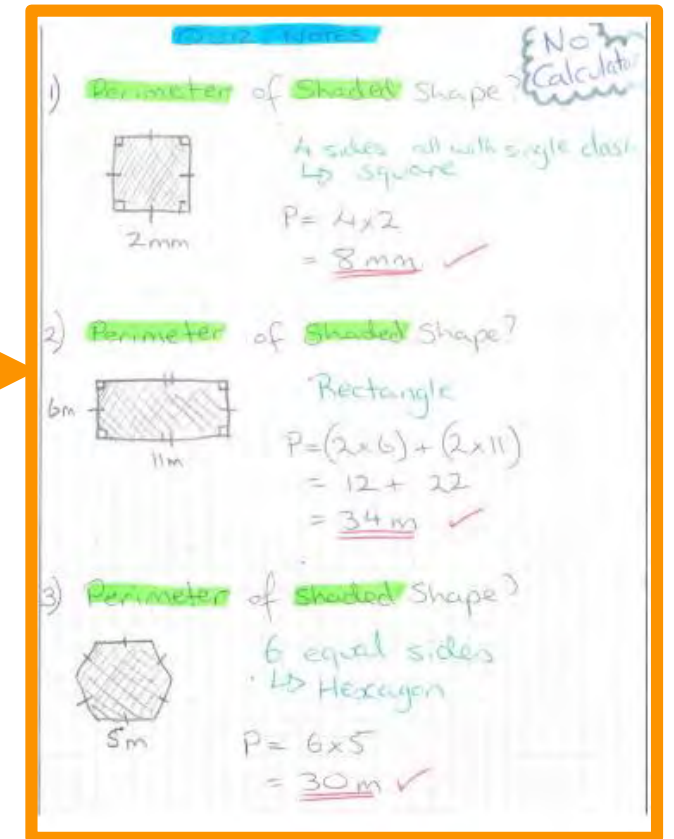 QUIZ NOTES
No
Calculator
1) Perimeter of Shaded Shape?
4 sides all with single dash
↳ square
2mm
P = 4x2
= 8 mm ✓
2) Perimeter of Shaded Shape?
Rectangle
6m
11m
P=(2x6) + (2x11)
= 12 + 22
= 34 m ✓
3) Perimeter of shaded Shape?
6 equal sides
↳ Hexagon
5m
P= 6x5
= 30 m ✓